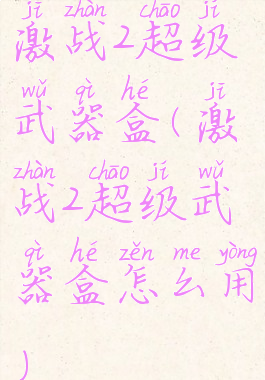 jī zhàn chāo jí
激战2超级
wǔ qì hé jī
武器盒(激
zhàn chāo jí wǔ
战2超级武
qì hé zěn me yòng
器盒怎么用
)